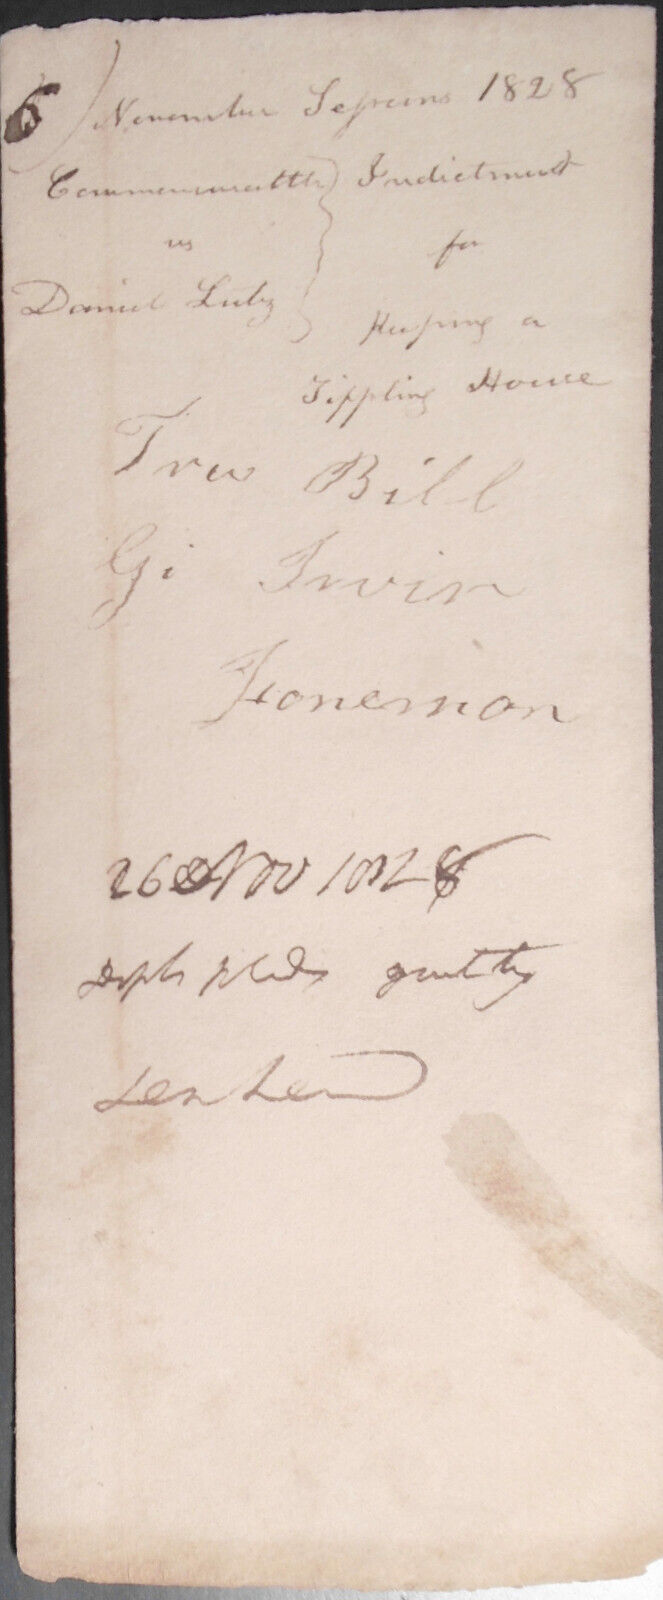 6) November Sessions 1828
Commonwealth } Indictment
vs for
Daniel Lutz Keeping a
Tippling House
True Bill
Irvin
Foreman
26 Nov 1828
guilty